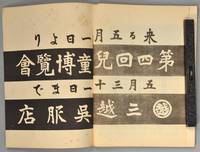 来る五月一日より
第四回兒童博覽會
五月三十一日まで
越 三越呉服店